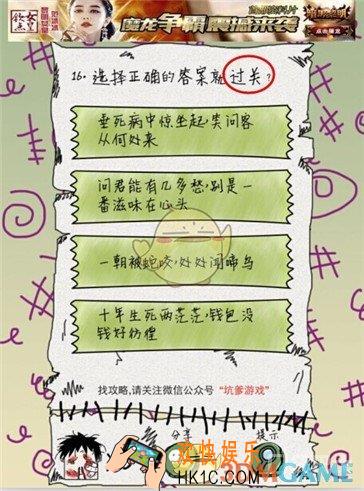 魔龙争霸 震撼来袭
点击镇龙
16. 选择正确的答案就过关?
垂死病中惊坐起,笑问客
从何处来
问君能有几多愁,别是一
番滋味在心头
一朝被蛇咬,处处闻啼鸟
十年生死两茫茫,钱包没
钱好彷徨
找攻略,请关注微信公众号 “坑爹游戏”
分享
提示
蚊蚋娱乐
HK1C.COM
GAME